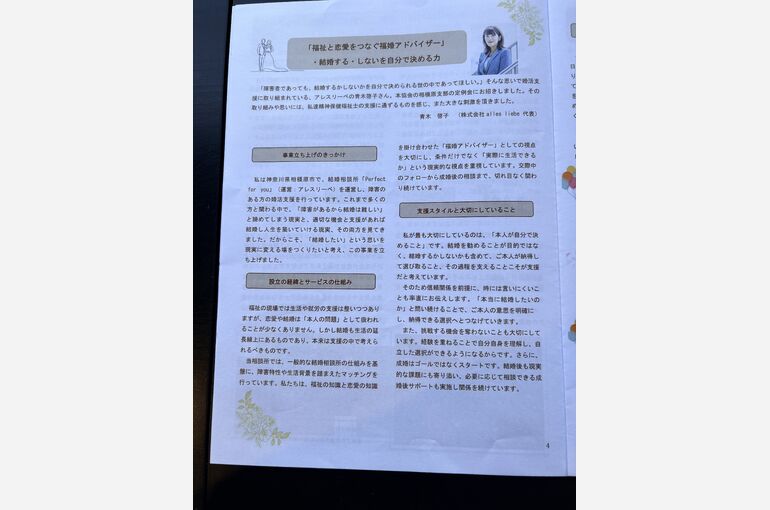 「福祉と恋愛をつなぐ福婚アドバイザー」
・結婚する・しないを自分で決める力
「障害者であっても、結婚するかしないかを自分で決められる世の中であってほしい。」そんな思いで婚活支
援に取り組まれている、アレスリーベの青木啓子さん。本協会の相模原支部の定例会にお招きしました。その
取り組みや思いには、私達精神保健福祉士の支援に通ずるものを感じ、また大きな刺激を頂きました。
青木 啓子 （株式会社alles liebe 代表）
事業立ち上げのきっかけ
私は神奈川県相模原市で、結婚相談所「Perfect
for you」（運営：アレスリーベ）を運営し、障害の
ある方の婚活支援を行っています。これまで多くの
方と関わる中で、「障害があるから結婚は難しい」
と諦めてしまう現実と、適切な機会と支援があれば
結婚し人生を築いていける現実、その両方を見てき
ました。だからこそ、「結婚したい」という思いを
現実に変える場をつくりたいと考え、この事業を立
ち上げました。
設立の経緯とサービスの仕組み
福祉の現場では生活や就労の支援は整いつつあり
ますが、恋愛や結婚は「本人の問題」として扱われ
ることが少なくありません。しかし結婚も生活の延
長線上にあるものであり、本来は支援の中で考えら
れるべきものです。
当相談所では、一般的な結婚相談所の仕組みを基
盤に、障害特性や生活背景を踏まえたマッチングを
行っています。私たちは、福祉の知識と恋愛の知識
を掛け合わせた「福婚アドバイザー」としての視点
を大切にし、条件だけでなく「実際に生活できる
か」という現実的な視点を重視しています。交際中
のフォローから成婚後の相談まで、切れ目なく関わ
り続けています。
支援スタイルと大切にしていること
私が最も大切にしているのは、「本人が自分で決
めること」です。結婚を勧めることが目的ではな
く、結婚するかしないかも含めて、ご本人が納得し
て選び取ること、その過程を支えることこそが支援
だと考えています。
そのため信頼関係を前提に、時には言いにくいこ
とも率直にお伝えします。「本当に結婚したいのか
」と問い続けることで、ご本人の意思を明確に
し、納得できる選択へとつなげていきます。
また、挑戦する機会を奪わないことも大切にして
います。経験を重ねることで自分自身を理解し、自
立した選択ができるようになるからです。さらに、
成婚はゴールではなくスタートです。結婚後も現実
的な課題にも寄り添い、必要に応じて相談できる成
婚後サポートも実施し関係を続けています。
4